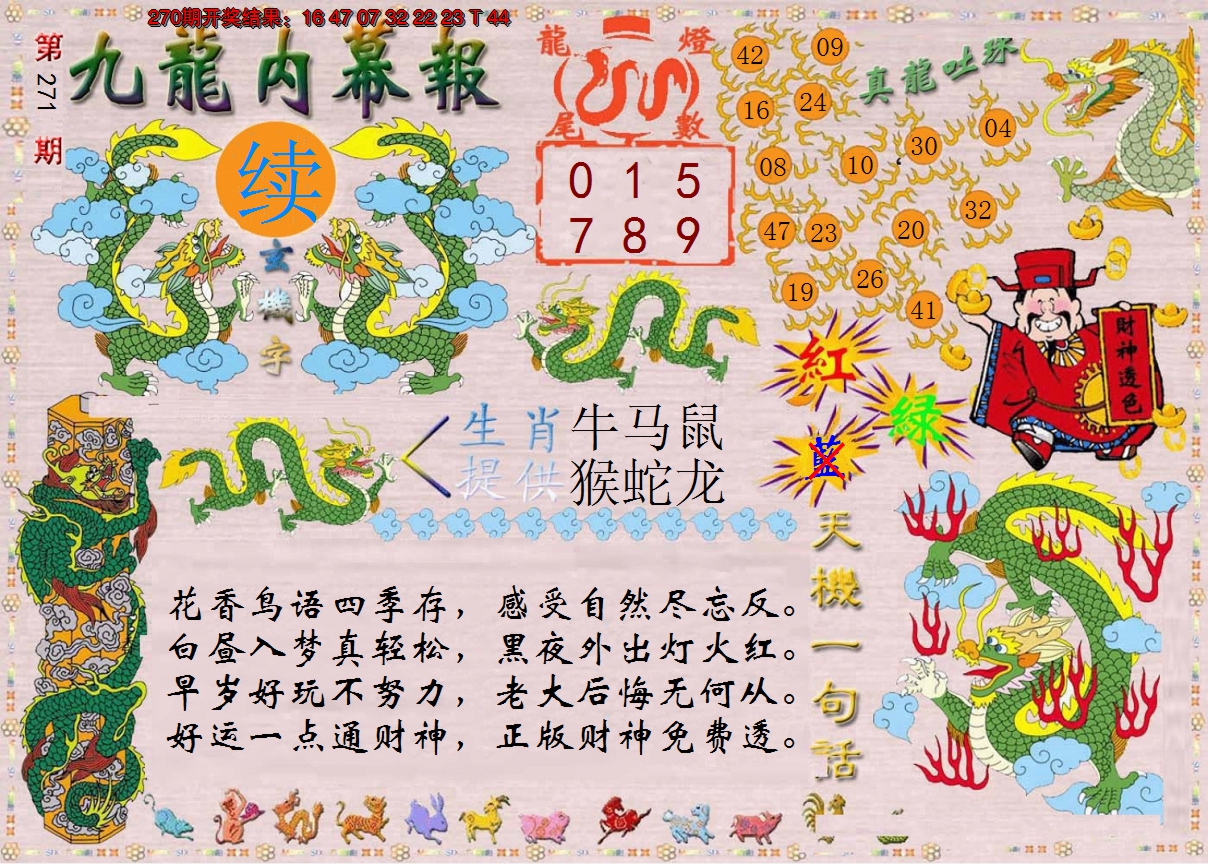 270期开奖结果：16 47 07 32 22 23 T 44
第271期
九龍内幕報
续
玄機字
龍燈
尾數
0 1 5
7 8 9
真龍吐珠
42 09
16 24
30 04
08 10
32
47 23 20
19 26
41
紅
綠
藍
財神透色
生肖 牛马鼠
提供 猴蛇龙
天機一句話
花香鸟语四季存，感受自然尽忘反。
白昼入梦真轻松，黑夜外出灯火红。
早岁好玩不努力，老大后悔无何从。
好运一点通财神，正版财神免费透。